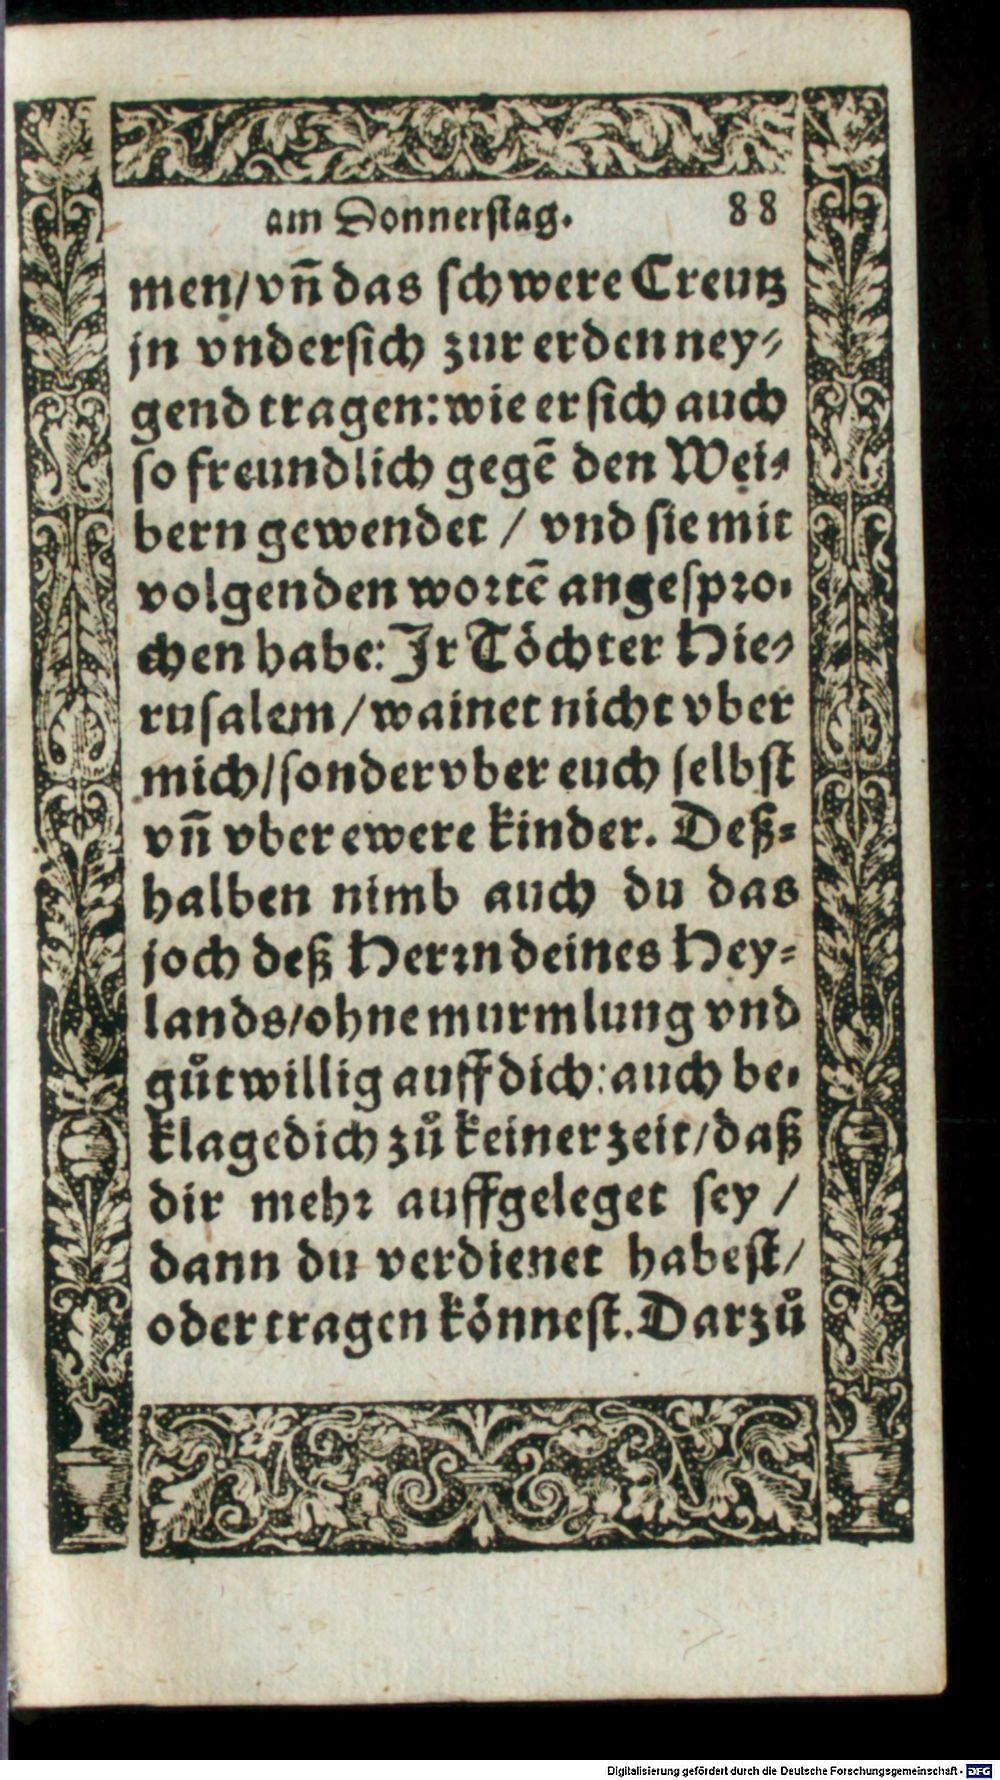 am Donnerſtag. 88
men/vn̄ das ſchwere Creutz
jn vnderſich zur erden ney⸗
gend tragen: wie er ſich auch
ſo freundlich gegē den Wei⸗
bern gewendet / vnd ſie mit
volgenden wortē angeſpro⸗
chen habe: Ir Töchter Hie⸗
ruſalem/wainet nicht vber
mich/ſonder vber euch ſelbſt
vn̄ vber ewere kinder. Deß⸗
halben nimb auch du das
joch deß Herrn deines Hey⸗
lands/ohne murmlung vnd
gůtwillig auff dich: auch be⸗
klage dich zů keiner zeit/daß
dir mehr auffgeleget ſey /
dann du verdienet habeſt/
oder tragen könneſt. Darzů
Digitalisierung gefördert durch die Deutsche Forschungsgemeinschaft - DFG